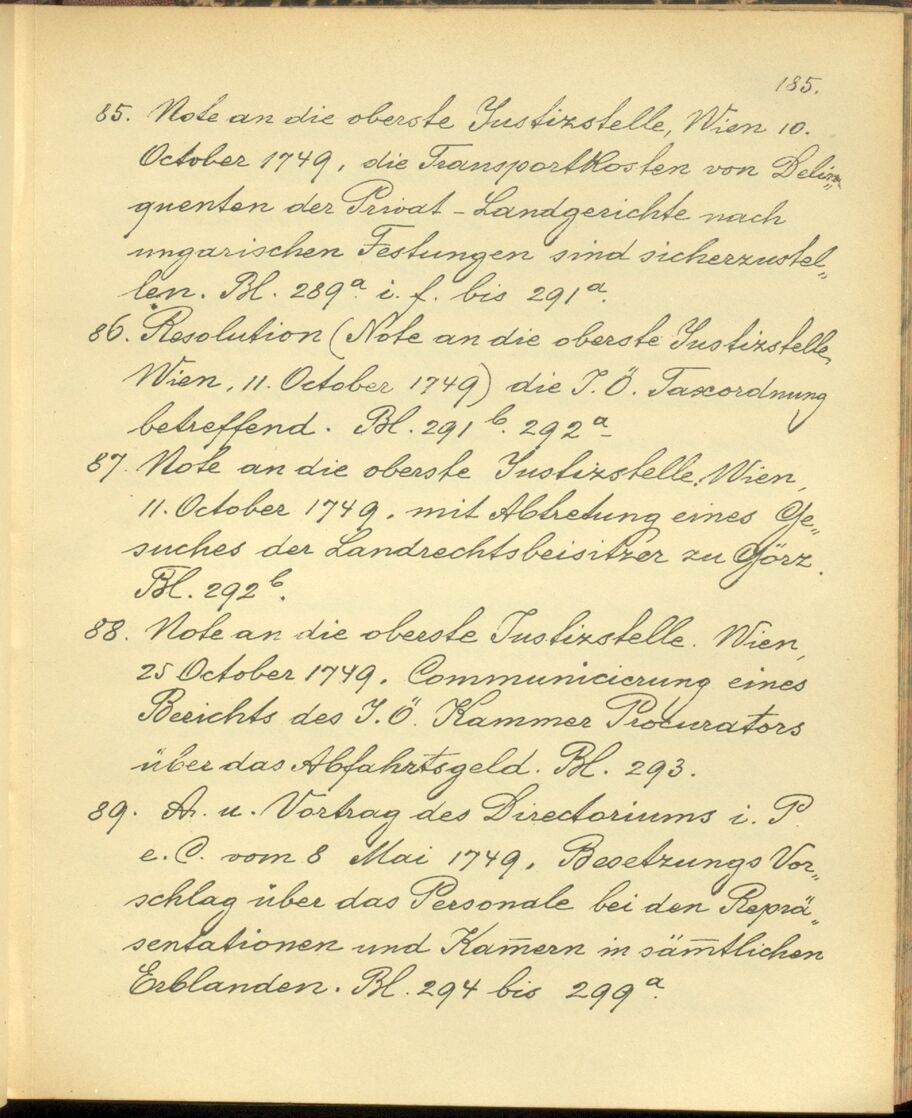 185.
85. Note an die oberste Justizstelle, Wien 10.
October 1749, die Transportkosten von Delin„
quenten der Privat-Landgerichte nach
ungarischen Festungen sind sicherzustel„
len. Bl. 289a. i. f. bis 291a.
86. Resolution (Note an die oberste Justizstelle,
Wien, 11. October 1749) die I. Ö. Taxordnung
betreffend. Bl. 291 b. 292 a.
87. Note an die oberste Justizstelle, Wien,
11. October 1749, mit Abtretung eines Ge„
suches der Landrechtsbeisitzer zu Görz.
Bl. 292b.
88. Note an die oberste Justizstelle. Wien,
25 October 1749. Communicierung eines
Berichts des I. Ö. Kammer Procurators
über das Abfahrtsgeld. Bl. 293.
89. A. u. Vortrag des Directoriums i. P.
e. C. vom 8 Mai 1749. Besetzungs Vor„
schlag über das Personale bei den Reprä„
sentationen und Kam̄ern in säm̄tlichen
Erblanden. Bl. 294 bis 299a.